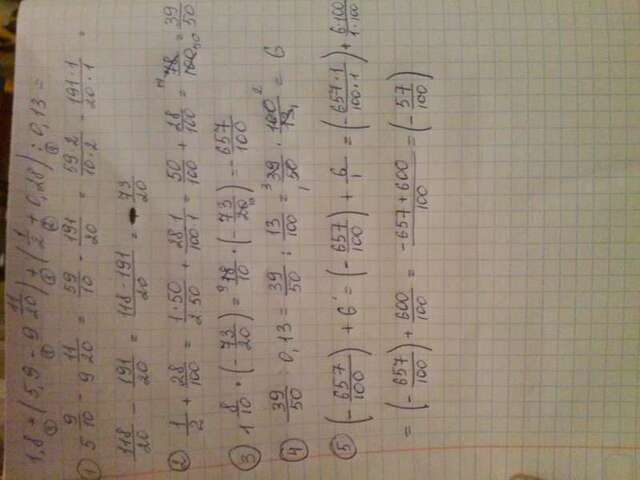 1,8 * (5,9 - 9 11/20) + (1/2 + 0,28) : 0,13 =
③ ① ⑤ ② ④
① 5 9/10 - 9 11/20 = 59/10 - 191/20 = 59·2/10·2 - 191·1/20·1 =
118/20 - 191/20 = 118-191/20 = - 73/20
② 1/2 + 28/100 = 1·50/2·50 + 28·1/100·1 = 50/100 + 28/100 = 78/100 = 39/50
③ 1 8/10 · (- 73/20) = 18/10 · (- 73/20) = - 657/100
④ 39/50 : 0,13 = 39/50 : 13/100 = 39/50 · 100/13 = 6
⑤ (- 657/100) + 6 = (- 657/100) + 6/1 = (- 657·1/100·1) + 6·100/1·100
= (- 657/100) + 600/100 = -657+600/100 = (- 57/100)